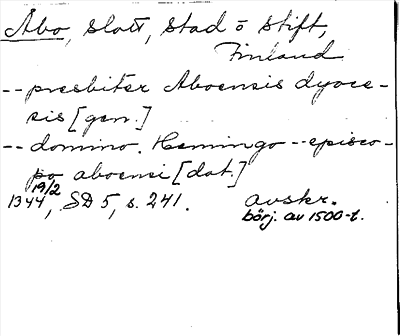 Åbo, slott, stad o stift,
Finland
-- presbiter Aboensis dyoce-
sis [gen.]
-- domino. Hemingo -- episco-
po aboensi [dat.]
19/2
1344, SD 5, s. 241. avskr.
börj. av 1500-t.